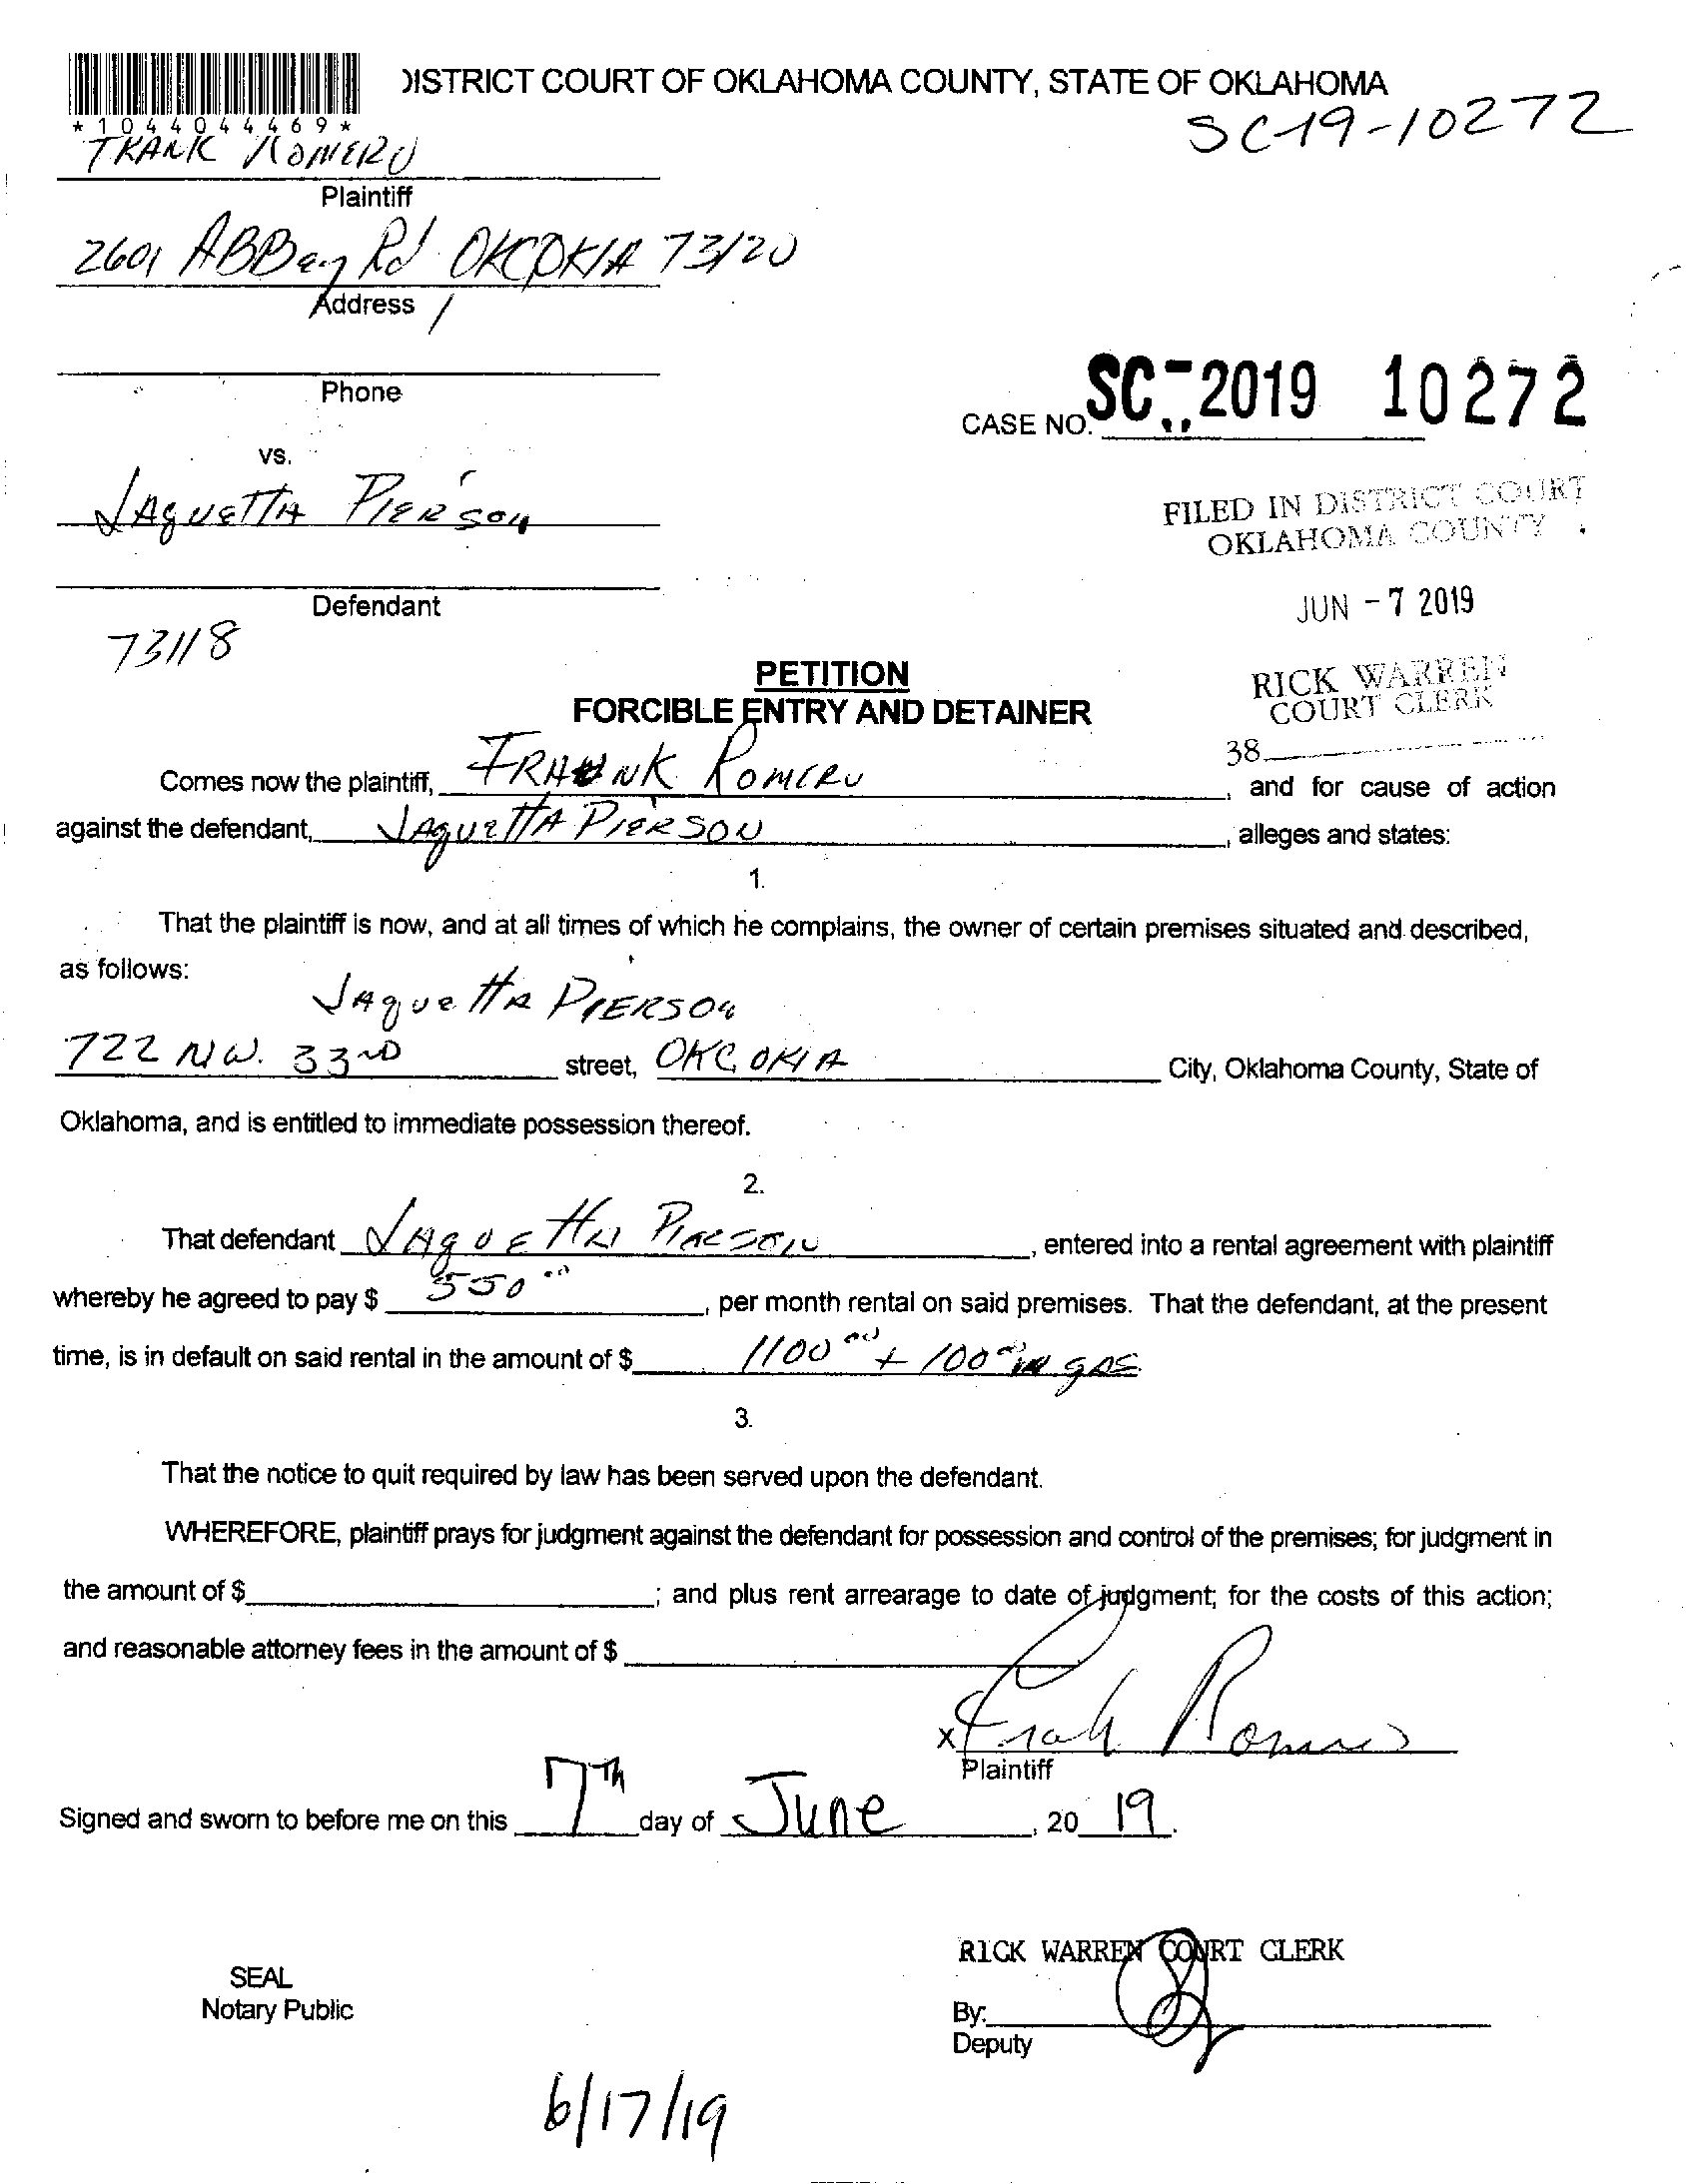 DISTRICT COURT OF OKLAHOMA COUNTY, STATE OF OKLAHOMA
*1044044469*
SC-19-10272
FRANK ROMERO
Plaintiff
2601 ABBey Rd OKC OKlA 73120
Address
Phone
CASE NO. SC-2019 10272
vs.
JAquETTA PIERSON
FILED IN DISTRICT COURT
OKLAHOMA COUNTY
Defendant
JUN - 7 2019
73118
PETITION
RICK WARREN
COURT CLERK
FORCIBLE ENTRY AND DETAINER
38
Comes now the plaintiff, FRANK ROMERO, and for cause of action
against the defendant, JAquETTA PIERSON, alleges and states:
1.
That the plaintiff is now, and at all times of which he complains, the owner of certain premises situated and described,
as follows:
JAqueTTA PIERSON
722 NW. 33RD street, OKC, OKlA City, Oklahoma County, State of
Oklahoma, and is entitled to immediate possession thereof.
2.
That defendant JAqUETTA PIERSON, entered into a rental agreement with plaintiff
whereby he agreed to pay $ 550.00, per month rental on said premises. That the defendant, at the present
time, is in default on said rental in the amount of $ 1100.00 + 100.00 in gas
3.
That the notice to quit required by law has been served upon the defendant.
WHEREFORE, plaintiff prays for judgment against the defendant for possession and control of the premises; for judgment in
the amount of $ ; and plus rent arrearage to date of judgment; for the costs of this action;
and reasonable attorney fees in the amount of $
x Frank Romero
Plaintiff
Signed and sworn to before me on this 7Th day of June, 20 19.
RICK WARREN COURT CLERK
SEAL
Notary Public
By:
Deputy
6/17/19